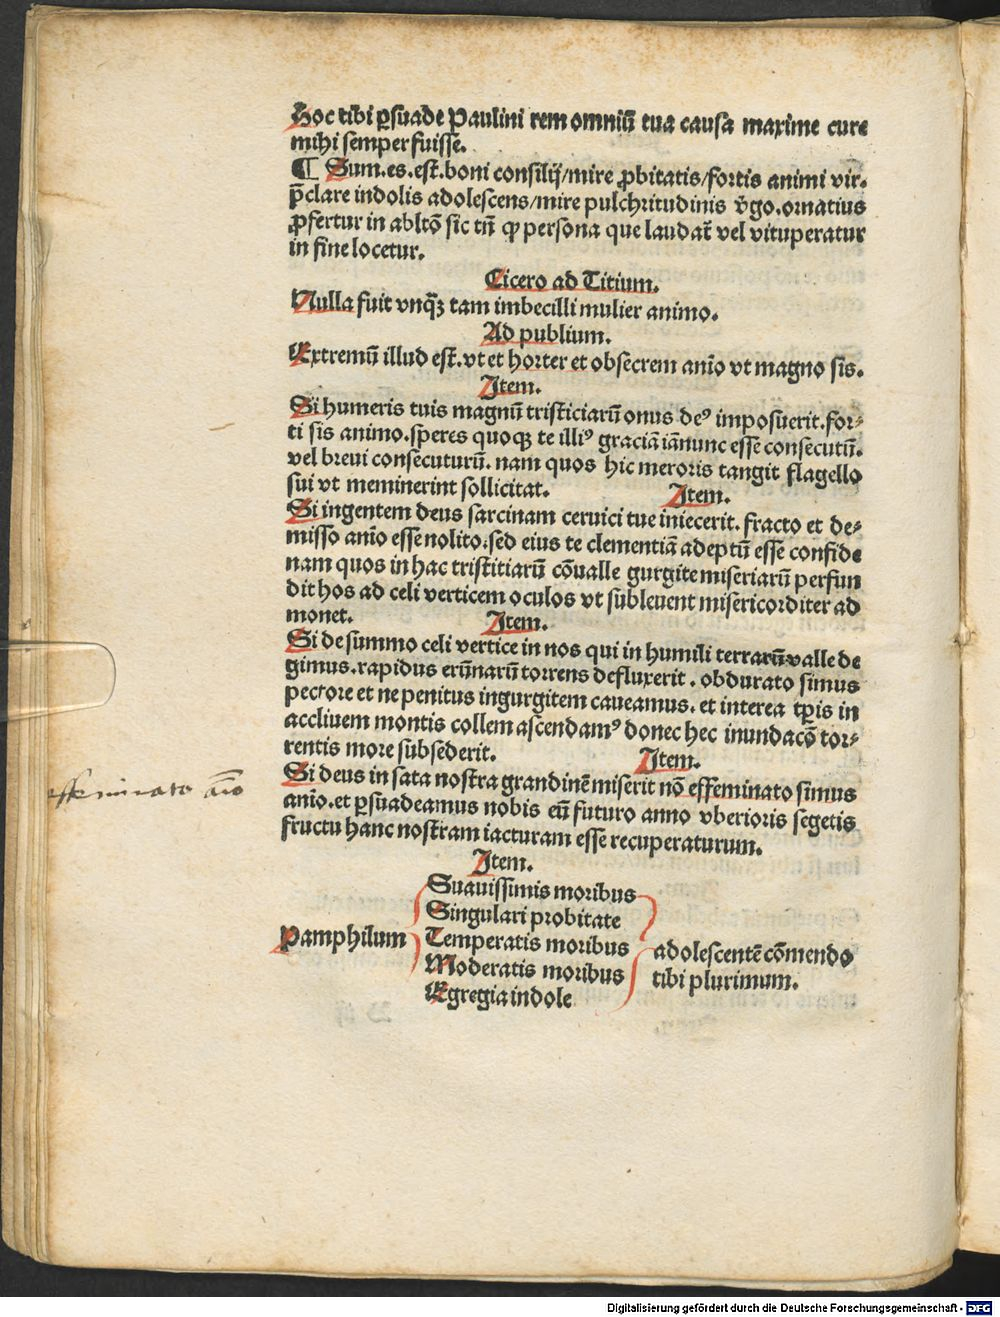 Hoc tibi ꝑsuade Paulini rem omniū tua causa maxime cure
mihi semper fuisse.
¶ Sum.es.est.boni consilij/mire ꝓbitatis/fortis animi vir.
p̄clare indolis adolescens/mire pulchritudinis v̄go.ornatius
ꝓfertur in abltō sic tn̄ ꝙ persona que laudat̄ vel vituperatur
in fine locetur.
Cicero ad Titium.
Nulla fuit vnq̄ꝫ tam imbecilli mulier animo.
Ad publium.
Extremū illud est.vt et horter et obsecrem anīo vt magno sis.
Item.
Si humeris tuis magnū tristiciarū onus deꝰ imposuerit.for⸗
ti sis animo.speres quoqꝫ te illiꝰ graciā iānunc esse consecutū.
vel breui consecuturū. nam quos hic meroris tangit flagello
sui vt meminerint sollicitat. Item.
Si ingentem deus sarcinam ceruici tue iniecerit. fracto et de⸗
misso anīo esse nolito:sed eius te clementiā adeptū esse confide
nam quos in hac tristitiarū cōualle gurgite miseriarū perfun
dit hos ad celi verticem oculos vt subleuent misericorditer ad
monet. Item.
Si de summo celi vertice in nos qui in humili terrarū valle de
gimus.rapidus erūnarū torrens defluxerit . obdurato simus
pectore et ne penitus ingurgitem caueamus. et interea tꝑis in
accliuem montis collem ascendamꝰ donec hec inundacō tor⸗
rentis more subsederit. Item.
Si deus in sata nostra grandinē miserit nō effeminato simus
anīo.et ꝑsuadeamus nobis eū futuro anno vberioris segetis
fructu hanc nostram iacturam esse recuperaturum.
effeminato aīo
Item.
Suauissimis moribus
Singulari probitate
Pamphilum Temperatis moribus adolescentē cōmendo
Moderatis moribus tibi plurimum.
Egregia indole
Digitalisierung gefördert durch die Deutsche Forschungsgemeinschaft - DFG